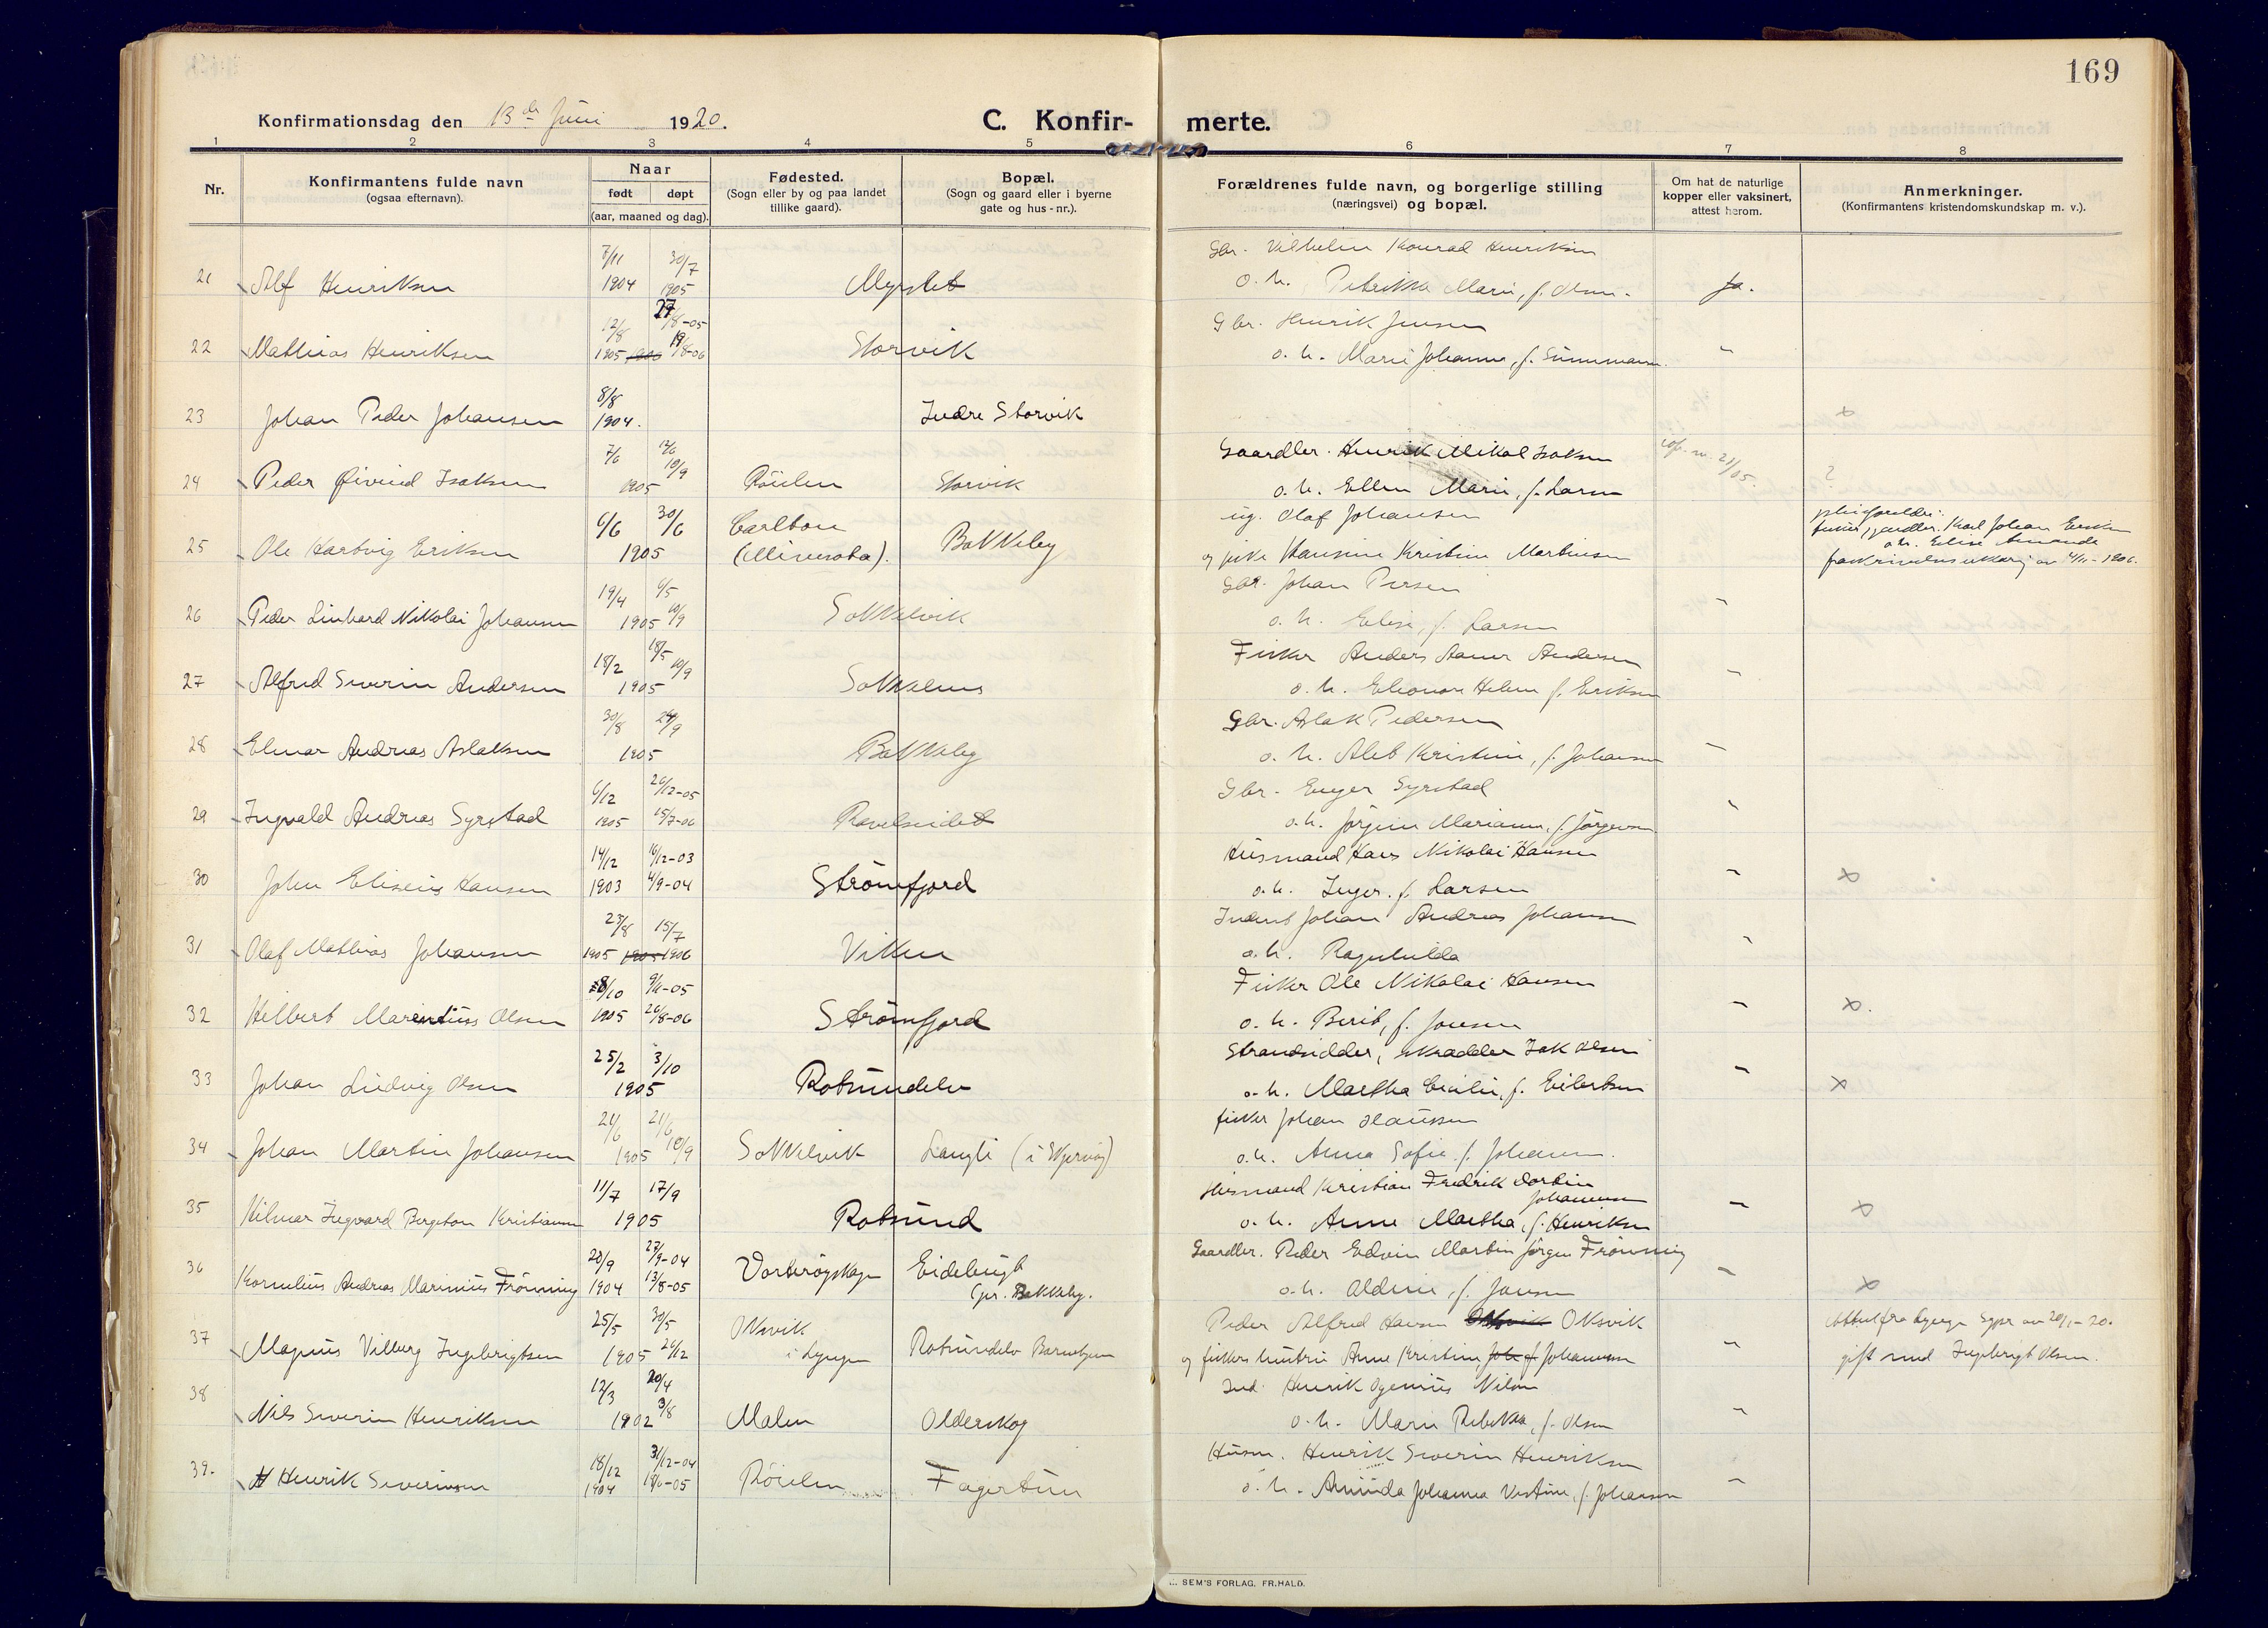 169
Konfirmationsdag den 13de Juni 1920.
C. Konfir- merte.
1 2 3 4 5 6 7 8
Nr.
Konfirmantens fulde navn
(ogsaa efternavn).
Naar
født døpt
(aar, maaned og dag).
Fødested.
(Sogn eller by og paa landet
tillike gaard).
Bopæl.
(Sogn og gaard eller i byerne
gate og hus-nr.).
Forældrenes fulde navn, og borgerlige stilling
(næringsvei) og bopæl.
Om hat de naturlige
kopper eller vaksinert,
attest herom.
Anmerkninger.
(Konfirmantens kristendomskundskap m. v.).
7/11 30/7 Gbr. Vilhelm Konrad Henriksen
21 Alf Henriksen 1904 1905 Myrslet o. h. Petrikka Marie, f. Olsen. Ja.
12/8 27/8-05 Gbr. Henrik Jensen
22 Mathias Henriksen 1905 19/8-06 Storvik o. h. Marie Johanna, f. "
8/8
23 Johan Peder Johansen 1904. Indre Storvik x
7/6 12/6 10/9 Gaardbr. Henrik Mikal Isaksen
24 Peder Øivind Isaksen 1905 Röielen Storvik o. h. Ellen Marie, f. Larsen ?
6/6 30/6 Carlton ug. Olaf Johansen pleiforældre:
25 Ole Hartvig Eriksen 1905 (Minnesota). Bakkeby og pike Hansine Kristine Martinsen
fisker, gaardbr. Karl Johan Eriksen
o. h. Elise Amanda
4/11-1906.
19/4 6/5 Gbr. Johan Persen
26 Peder Linhard Nikolai Johansen 1905 10/9 Sokkelvik o. h. Elise, f. Larsen "
18/2 18/5 10/9 Fisker Anders Aaner Andersen
27 Alfred Severin Andersen 1905 Sokkelnes o. h. Eleonore Helene f. Eriksen "
30/8 24/9 Gbr. Aslak Pedersen
28 Elmar Andreas Aslaksen 1905 Bakkeby o. h. Alet Kristine, f. Johansen "
6/12 26/12-05 Gbr. Enger Syrstad
29 Ingvald Andreas Syrstad 1905 15/7-06 Ravelseidet o. h. Jørgine Marianne, f. Jørgensen "
14/12 16/12-03 Husmand Hans Nikolai Hansen
30 John Eliseus Hansen 1903 4/9-04 Strömfjord o. h. Inger. f. Larsen " x
23/8 15/7 Inderst Johan Andreas Johansen
31 Olaf Mathias Johansen 1905 1905 1906 Viken o. h. Ragnhilda "
8/10 9/11-05 Fisker Ole Nikolai Hansen
32 Hilbert Marentius Olsen 1905 26/8-06 Strömfjord o. h. Berit, f. Jonsen " x.
25/2 3/10 Strandsidder, skrædder Isak Olsen
33 Johan Ludvig Olsen 1905 Rotsundelv o. h. Martha Cecilie, f. Eilertsen " x
21/6 21/6 fisker Johan Hanssen
34 Johan Martin Johansen 1905 10/9 Sokkelvik Langli (i Skjervøy) o. h. Anna Sofie f. Johansen.
11/7 17/9 Husmand Kristian Fredrik Dortin
Johannesen
35 Hilmar Ingvard Bergeton Kristiansen 1905 Rotsund o. h. Anne Martha, f. Henriksen " x
20/9 27/9-04 Gaardbr. Peder Edvin Martin Jörgen Frönning
36 Kornelius Andreas Marinius Frönning 1904 13/8-05 Vorterøyskagen Eidebugt
(pr. Bakkeby. o. h. Aldine, f. Jansen " x
25/5 30/5 Oksvik Peder Alfred Hansen Oksvik Oksvik
37 Magnus Vilberg Ingebrigtsen 1905 26/12 i Lyngen Rotsundelv Barnehjem og fiskers hustru Anne Kristine Joh f Johannessen "
Attest fra Lyngen Sgpr av 20/1-20.
gift med Ingebrigt Olsen.
12/3 20/4 Ind. Henrik Ogenius Nilsen
38 Nils Severin Henriksen 1902 3/8 Malen Olderskog o. h. Marie Rebekka, f. Olsen "
18/12 31/12-04 Husm. Henrik Severin Henriksen
39. Henrik Severinsen 1904 18/6-05 Röielen Fagertun o. h. Aminda Johanna Vestine, f. Johansen "
SEM'S FORLAG. FR. HALD.